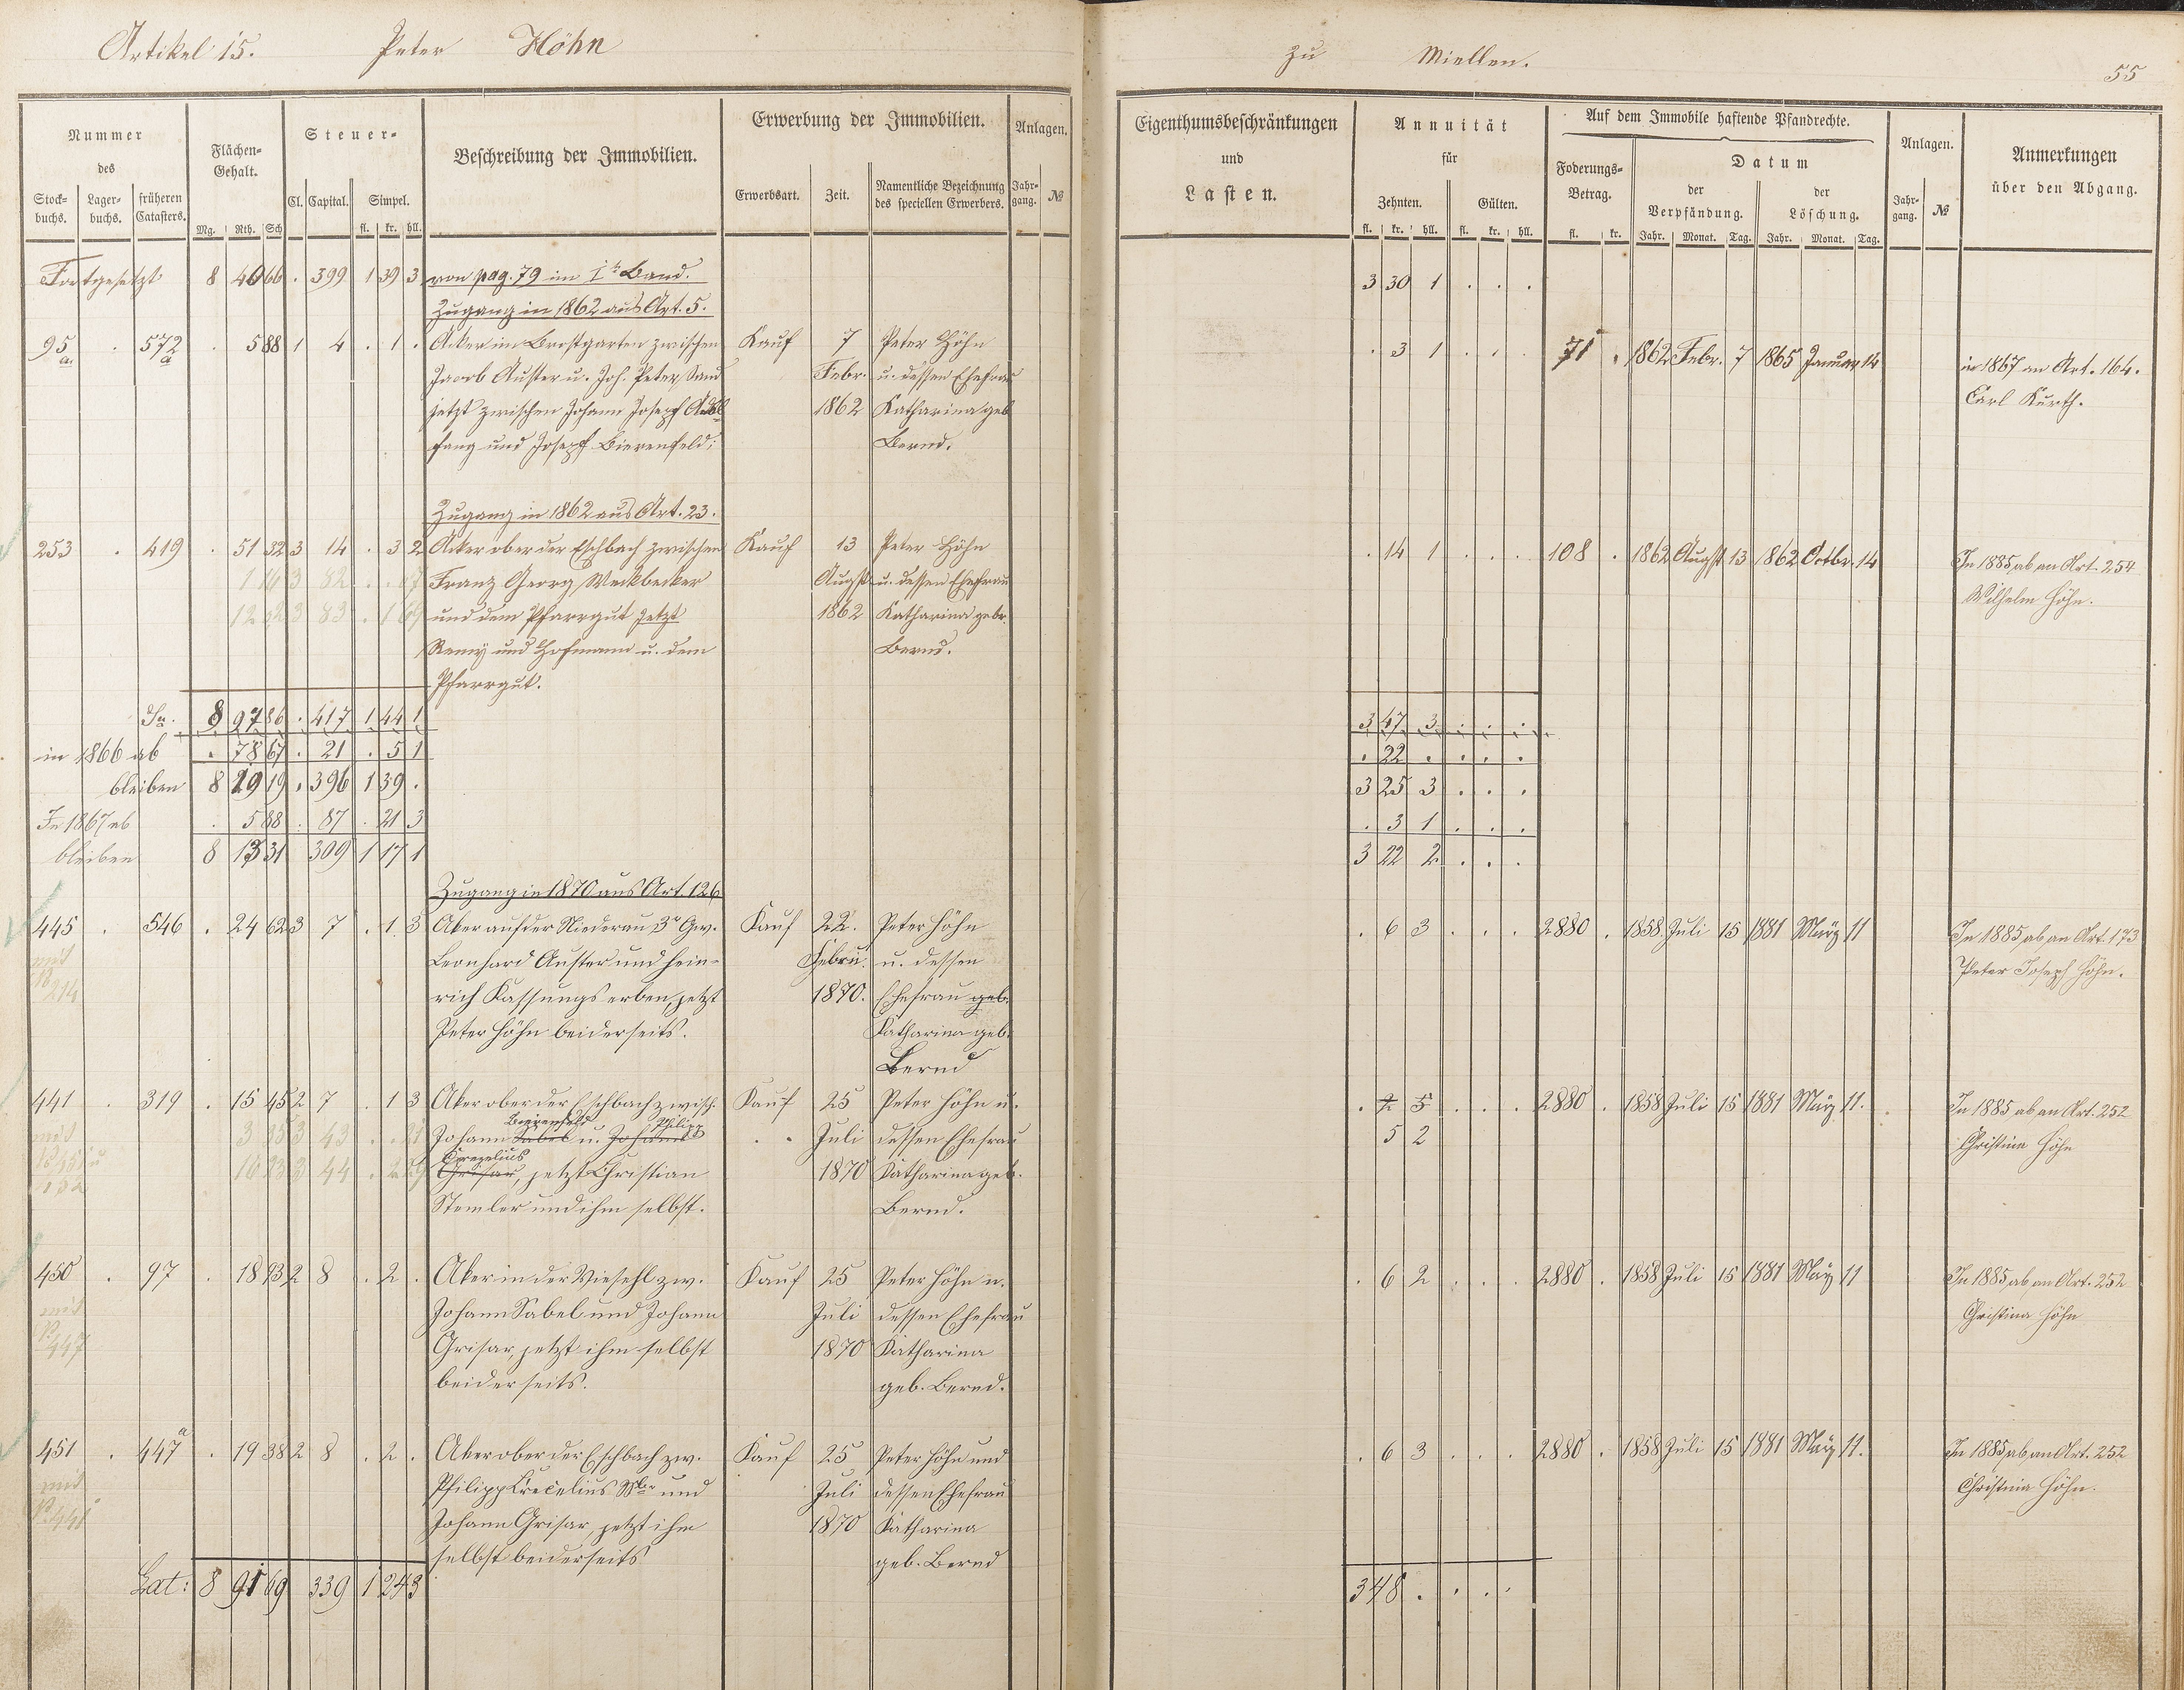 Artikel 15. Peter Höhn zu Miellen. 55
Nummer des
Stock-buchs. Lager-buchs. früheren Catasters.
Flächen-Gehalt.
Mg. Rth. Sch
Steuer-
Cl. Capital. Simpel.
fl. kr. hll.
Beschreibung der Immobilien.
Erwerbung der Immobilien.
Erwerbsart. Zeit. Namentliche Bezeichnung des speciellen Erwerbers.
Anlagen.
Jahr-gang. №
Eigenthumsbeschränkungen
und
Lasten.
Annuität
für
Zehnten. Gülten.
fl. kr. hll. fl. kr. hll.
Auf dem Immobile haftende Pfandrechte.
Foderungs-Betrag.
fl. kr.
Datum
der Verpfändung. der Löschung.
Jahr. Monat. Tag. Jahr. Monat. Tag.
Anlagen.
Jahr-gang. №
Anmerkungen
über den Abgang.
Fortgesetzt 8 40 66 . 399 1 39 3 von pag. 79 im I Band. 3 30 1 . . .
Zugang in 1862 aus Art. 5.
95 a. . 572 a . 5 88 1 4 . 1 . Acker im Brostgarten zwischen Kauf 7 Peter Höhn . 3 1 . . . 71 . 1862 Febr. 7 1865 Januar 14 in 1867 an Art. 164.
Jacob Auster u. Joh. Peter Sand Febr. u. dessen Ehefrau Carl Kurth.
jetzt zwischen Johann Josepf 1862 Katharina geb
fang und Josepf Bierenfeld; Bernd.
Zugang in 1862 aus Art. 23.
253 . 419 . 51 32 3 14 . 3 2 Acker ober der Eschbach zwischen Kauf 13 Peter Höhn . 14 1 . . . 108 . 1862 Augst 13 1862 Octbr. 14 In 1885 ab an Art. 254
Franz Georg Weckbecker Augst u. dessen Ehefrau Wilhelm Höhn.
und dem Pfarrgut jetzt 1862 Katharina gebr.
Remy und Hofmann u. dem Bernd.
Pfarrgut.
Sa. 8 97 86 . 417 1 44 1 3 47 3 . . .
in 1866 ab . 78 67 . 21 . 5 1 . 22 . . . .
bleiben 8 19 19 . 396 1 39 . 3 25 3 . . .
In 1867 ab . 5 88 . 87 . 21 3 . 3 1 . . .
bleiben 8 13 31 309 1 17 1 3 22 2 . . .
Zugang in 1870 aus Art. 126
445 . 546 . 24 62 3 7 . 1 3 Aker auf der Niederau 3r Gew. Kauf 22. Peter Höhn . 6 3 . . . 2880 . 1858 Juli 15 1881 März 11 In 1885 ab an Art. 173
mit Leonhard Auster und Hein- Febru. u. dessen Peter Joseph Höhn.
214 rich Kassungs erben, jetzt 1870. Ehefrau geb.
Peter Höhn beiderseits. Katharina geb.
Bernd
441 . 319 . 15 45 2 7 . 1 3 Aker ober der Eschbach zwisch. Kauf 25 Peter Höhn u. . 2 5 . . . 2880 . 1858 Juli 15 1881 März 11. In 1885 ab an Art. 252
Bierenfeld Philipp
mit Johann Sabel u. Johann Juli dessen Ehefrau 5 2 Christina Höhn
Crecelius
Grisar, jetzt Christian 1870 Katharina geb.
Stemler und ihm selbst. Bernd.
450 . 97 . 18 93 2 8 . 2 . Aker in der Wiesehl zw. Kauf 25 Peter Höhn u. . 6 2 . . . 2880 . 1858 Juli 15 1881 März 11 In 1885 ab an Art. 252
mit Johann Sabel und Johann Juli dessen Ehefrau Christina Höhn
447 Grisar, jetzt ihm selbst 1870 Katharina
beiderseits. geb. Bernd.
451 . 447 a . 19 38 2 8 . 2 . Aker ober der Eschbach zw. Kauf 25 Peter Höhn und . 6 3 . . . 2880 . 1858 Juli 15 1881 März 11. In 1885 ab an Art. 252
mit Philipp Crecelius und Juli dessen Ehefrau Christina Höhn.
441 Johann Grisar, jetzt ihm 1870 Katharina
selbst beiderseits geb. Bernd
Lat: 8 91 69 339 1 24 3 3 48 . . . .